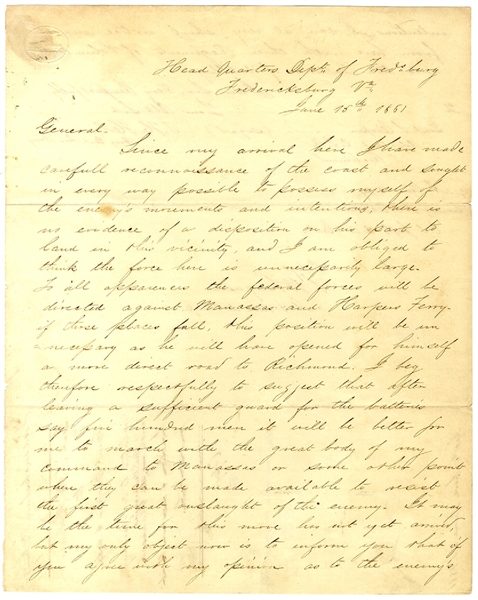 Head Quarters Dept. of Fredsburg
Fredericksburg Va.
June 15th 1861
General.
Since my arrival here I have made
carefull reconnaissance of the coast and sought
in every way possible to possess myself of
the enemy's movements and intentions; there is
no evidence of a disposition on his part to
land in this vicinity, and I am obliged to
think the force here is unnecessarily large.
To all apparences the federal forces will be
directed against Manassas and Harpers Ferry.
if those places fall, this position will be un
=necessary as he will have opened for himself
a more direct road to Richmond. I beg
therefore respectfully to suggest that after
leaving a sufficient guard for the batteries
say five hundred men it will be better for
me to march with the great body of my
command to Manassas or some other point
where they can be made available to resist
the first great onslaught of the enemy. It may
be the time for this move has not yet arrived,
but my only object now is to inform you that if
you agree with my opinion as to the enemy's